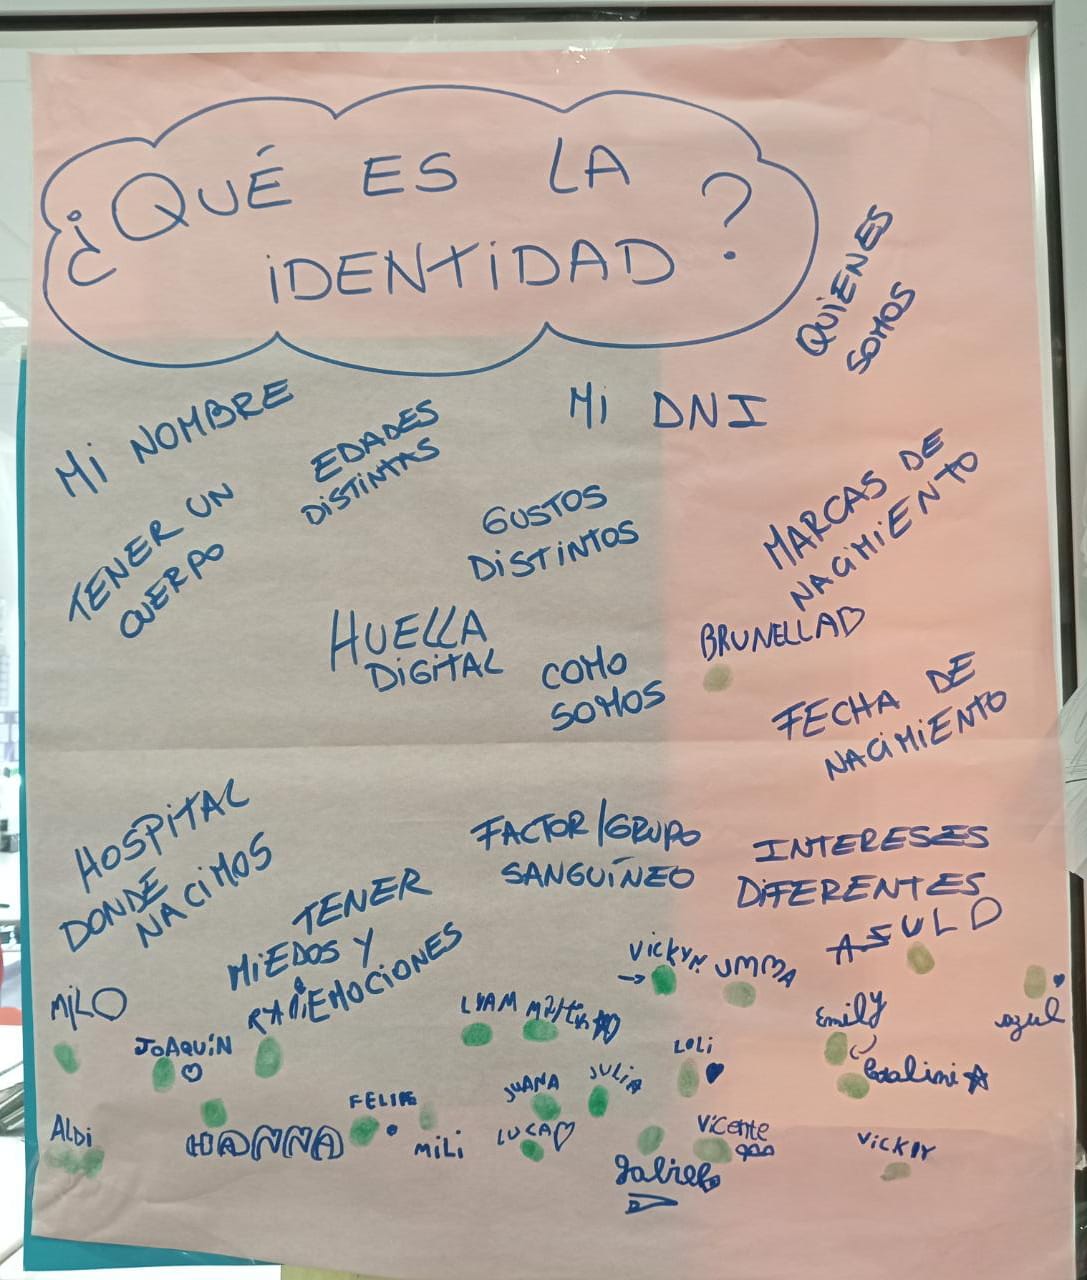 ¿QUÉ ES LA
IDENTIDAD?
QUIENES
SOMOS
MI NOMBRE
EDADES
DISTINTAS
MI DNI
TENER UN
CUERPO
GUSTOS
DISTINTOS
MARCAS DE
NACIMIENTO
HUELLA
DIGITAL
COMO
SOMOS
BRUNELLA D
FECHA DE
NACIMIENTO
HOSPITAL
DONDE
NACIMOS
FACTOR/GRUPO
SANGUÍNEO
INTERESES
DIFERENTES
TENER
MIEDOS Y
EMOCIONES
VICKYN
UMMA
ASULD
MILO
JOAQUÍN
LYAM
Emily
azul
LOLI
JUANA
JULIA
ALDI
HANNA
FELIPE
MILI
LUCA
Vicente
VICKIY